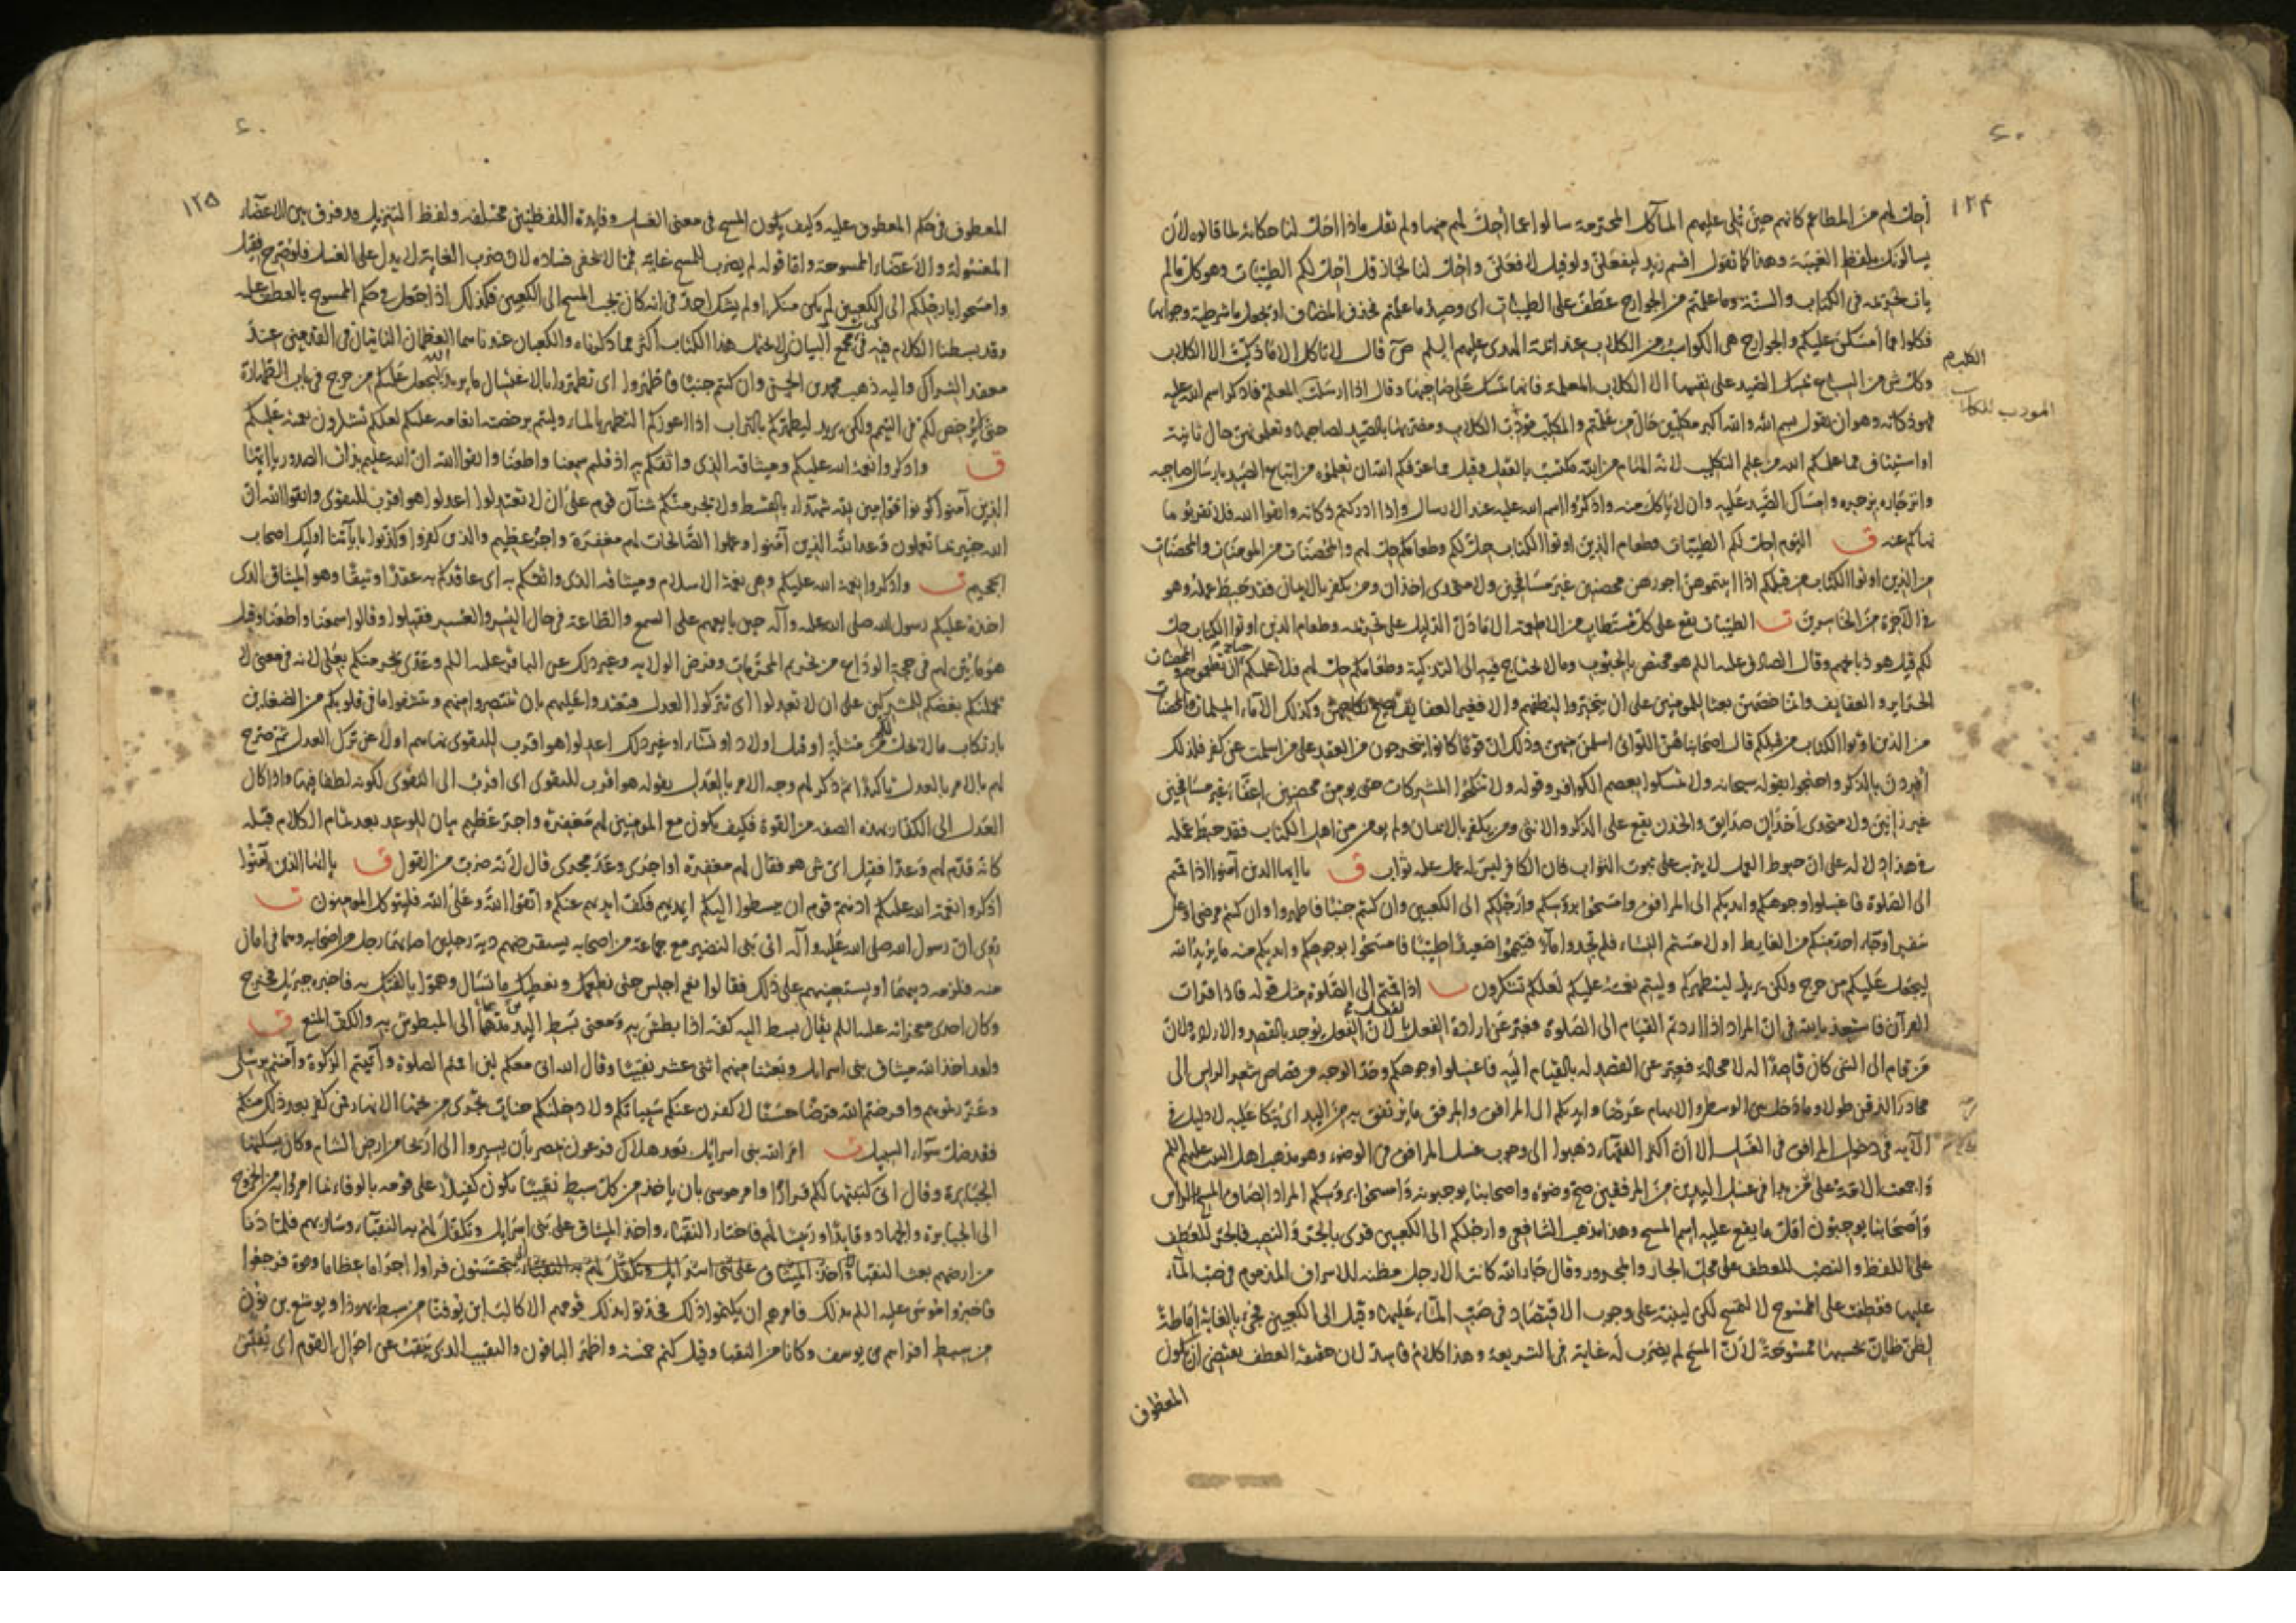 ٤٠
١٢۴
أحل لهم من المطاعم كانهم حين تلى عليهم المآكل المحرمة سالوا عما أحل لهم منها ولم نقل ماذا احل لنا حكاية لما قالوه لان
يسالونك بلفظ الغيبة وهذا كما تقول اقسم زيد ليفعلن ولو قيل لافعلن واحل لنا لجاز قل احل لكم الطيبات وهو كل ما لم
يات تحريمه فى الكتاب والسنة وما علمتم من الجوارح عطف على الطيبات اى وصيد ما علمتم فحذف المضاف او تجعل ما شرطية وجوابها
فكلوا مما أمسكن عليكم والجوارح هى الكواسب من الكلاب عند ائمة الهدى عليهم السلم قال لا تاكل الا ما ذكيت الا الكلاب
وكل شى من السباع تمسك الصيد على نفسها الا الكلاب المعلمة فانها تمسك على صاحبها وقال اذا ارسلت المعلم فاذكر اسم الله عليه
فهو ذكاته وهو ان تقول بسم الله والله اكبر مكلبين حال من علمتم والمكلب مؤدب الكلاب ومضريها بالصيد لصاحبها وتعلمونهن حال ثانية
او استيناف مما علمكم الله من علم التكليب لانه الهام من الله مكتسب بالعقل وقيل مما عرفكم الله ان تعلموه من اتباع الصيد بارسال صاحبه
وانزجاره بزجره وامساك الصيد عليه وان لا ياكل منه واذكروا اسم الله عليه عند الارسال واذا ادركتم ذكاته واتقوا الله فلا تقربوا ما
نهاكم عنه ق اليوم احل لكم الطيبات وطعام الذين اوتوا الكتاب حل لكم وطعامكم حل لهم والمحصنات من المومنات والمحصنات
من الذين اوتوا الكتاب من قبلكم اذا اتيتموهن اجورهن محصنين غير مسافحين ولا متخذى اخذان ومن يكفر بالايمان فقد حبط عمله وهو
فى الآخرة من الخاسرين ت الطيبات يقع على كل مستطاب من الاطعمة الا ما دل الدليل على تحريمه وطعام الذين اوتوا الكتاب حل
لكم قيل هو ذبائحهم وقال الصادق عليه السلم هو مختص بالحبوب وما لا يحتاج فيه الى التذكية وطعامكم حل لهم فلا عليكم ان تطعموهم
الحراير والعفايف وانما خصهن بعثا للمومنين على ان يتخيروا لنطفهم والا فغير العفايف يصح نكاحهن وكذلك الاماء المسلمات والمحصنات
من الذين اوتوا الكتاب من قبلكم قال اصحابنا هن اللواتى اسلمن منهن وذلك ان قوما كانوا يتحرجون من العقد على من اسلمت عن كفر فلذلك
أفردن بالذكر واحتجوا بقوله سبحانه ولا تمسكوا بعصم الكوافر وقوله ولا تنكحوا المشركات حتى يومن محصنين اعفاء غير مسافحين
غير زانين ولا متخذى أخذان صدايق والخدن يقع على الذكر والانثى ومن يكفر بالايمان ولم يومن من اهل الكتاب فقد حبط عمله
فى هذا دلالة على ان حبوط العمل لا يترتب على ثبوت الثواب فان الكافر ليس له عمل عليه ثواب ق يا ايها الذين آمنوا اذا قمتم
الى الصلوة فاغسلوا وجوهكم وايديكم الى المرافق وامسحوا برؤسكم وارجلكم الى الكعبين وان كنتم جنبا فاطهروا وان كنتم مرضى او على
سفر او جاء احد منكم من الغايط او لامستم النساء فلم تجدوا ماء فتيمموا صعيدا طيبا فامسحوا بوجوهكم وايديكم منه ما يريد الله
ليجعل عليكم من حرج ولكن يريد ليطهركم وليتم نعمته عليكم لعلكم تشكرون ت اذا قمتم الى الصلوة مثل قوله فاذا قرات
القرآن فاستعذ بالله فى ان المراد اذا اردتم القيام الى الصلوة فعبر عن ارادة الفعل بالفعل لان الفعل يوجد بالقصد والارادة ولان
من قام الى الشى كان قاصدا له لا محالة فعبر عن القصد له بالقيام اليه فاغسلوا وجوهكم وحد الوجه من قصاص شعر الراس الى
محادر الذقن طولا وما دخل بين الوسطى والابهام عرضا وايديكم الى المرافق والمرفق ما يرتفق به من اليد اى يتكا عليه لا دليل فى
الآية فى دخول المرافق فى الغسل الا ان اكثر الفقهاء ذهبوا الى وجوب غسل المرافق فى الوضوء وهو مذهب اهل البيت عليهم السلم
واجمعت الامة على من بدا فى غسل اليدين من المرفقين صح وضوه واصحابنا يوجبونه وامسحوا برؤسكم المراد الصاق المسح بالراس
واصحابنا يوجبون اقل ما يقع عليه اسم المسح وهذا مذهب الشافعى وارجلكم الى الكعبين قرى بالجر والنصب فالجر للعطف
على اللفظ والنصب للعطف على محل الجار والمجرور وقال جار الله كانت الارجل مظنة للاسراف المذموم فى صب الماء
عليها فعطفت على الممسوح لا لتمسح لكن لينبه على وجوب الاقتصاد فى صب الماء عليها وقيل الى الكعبين فجئ بالغاية اماطة
لظن ظان يحسبها ممسوحة لان المسح لم يضرب له غاية فى الشريعة وهذا كلام فاسد لان حقيقة العطف يقتضى ان يكون
المعطوف
المودب للكلاب
٤٠
١٢۵
المعطوف فى حكم المعطوف عليه وكيف يكون المسح فى معنى الغسل وفايدة اللفظين مختلفة ولفظ التنزيل قد فرق بين الاعضاء
المغسولة والاعضاء الممسوحة واما قوله لم يضرب للمسح غاية فمما لا يخفى فساده لان ضرب الغاية لا يدل على الغسل فلو صرح فقيل
وامسحوا بارجلكم الى الكعبين لم يكن منكرا ولم يشك احد فى انه كان يجب المسح الى الكعبين فكذلك اذا جعل فى حكم الممسوح بالعطف عليه
وقد بسطنا الكلام فيه فى مجمع البيان لا يحتمل هذا الكتاب اكثر مما ذكرناه والكعبان عندنا هما العظمان الناتيان فى القدمين عند
معقد الشراك واليه ذهب محمد بن الحسن وان كنتم جنبا فاطهروا اى تطهروا بالاغتسال ما يريد الله ليجعل عليكم من حرج فى باب الطهارة
حتى لا يرخص لكم فى التيمم ولكن يريد ليطهركم بالتراب اذا اعوزكم التطهر بالماء وليتم برخصته انعامه عليكم لعلكم تشكرون نعمته عليكم
ق واذكروا نعمة الله عليكم وميثاقه الذى واثقكم به اذ قلتم سمعنا واطعنا واتقوا الله ان الله عليم بذات الصدور يا ايها
الذين آمنوا كونوا قوامين لله شهداء بالقسط ولا يجرمنكم شنآن قوم على ان لا تعدلوا اعدلوا هو اقرب للتقوى واتقوا الله ان
الله خبير بما تعملون وعد الله الذين آمنوا وعملوا الصالحات لهم مغفرة واجر عظيم والذين كفروا وكذبوا بآياتنا اوليك اصحاب
الجحيم ت واذكروا نعمة الله عليكم وهى نعمة الاسلام وميثاقه الذى واثقكم به اى عاقدكم به عقدا وثيقا وهو الميثاق الذى
اخذه عليكم رسول الله صلى الله عليه وآله حين بايعهم على السمع والطاعة فى حال اليسر والعسر فقبلوا وقالوا سمعنا واطعنا وقيل
هو ما بين لهم فى حجة الوداع من تحريم المحرمات وفرض الولاية وغير ذلك عن الباقر عليه السلم وعدى يجرمنكم بعلى لانه فى معنى لا
يحملنكم بغضكم للمشركين على ان لا تعدلوا اى تتركوا العدل فتعتدوا عليهم بان تنتصروا منهم وتتشفوا ما فى قلوبكم من الضغاين
بارتكاب ما لا يحل لكم من مثلة او قتل اولاد او نساء او غير ذلك اعدلوا هو اقرب للتقوى نهاهم اولا عن ترك العدل ثم صرح
لهم بالامر بالعدل تاكيدا ثم ذكر لهم وجه الامر بالعدل بقوله هو اقرب للتقوى اى اقرب الى التقوى لكونه لطفا فيها واذا كان
العدل الى الكفار بهذه الصفة من القوة فكيف يكون مع المومنين لهم مغفرة واجر عظيم بيان للوعد بعد تمام الكلام قبله
كانه قدم لهم وعدا فقيل اى شى هو فقال لهم مغفرة او اجرى وعد مجرى قال لانه ضرب من القول ق يا ايها الذين آمنوا
اذكروا نعمة الله عليكم اذ هم قوم ان يبسطوا اليكم ايديهم فكف ايديهم عنكم واتقوا الله وعلى الله فليتوكل المومنون ت
روى ان رسول الله صلى الله عليه وآله اتى بنى النضير مع جماعة من اصحابه يستقرضهم دية رجلين اصابهما رجل من اصحابه وهما فى امان
منه فلزمه ديتهما او يستعينهم على ذلك فقالوا نعم اجلس حتى نطعمك ونعطيك ما تسال وهموا بالفتك به فاخبره جبريل فخرج
وكان احدى معجزاته عليه السلم يقال بسط اليه كفه اذا بطش به ومعنى بسط اليد مدها الى المبطوش به والكف المنع ق
ولقد اخذ الله ميثاق بنى اسرايل وبعثنا منهم اثنى عشر نقيبا وقال الله انى معكم لئن اقمتم الصلوة وآتيتم الزكوة وآمنتم برسلى
وعزرتموهم واقرضتم الله قرضا حسنا لاكفرن عنكم سيئاتكم ولادخلنكم جنات تجرى من تحتها الانهار فمن كفر بعد ذلك منكم
فقد ضل سواء السبيل ت امر الله بنى اسرائيل بعد هلاك فرعون بمصر بأن يسيروا الى اريحا من ارض الشام وكان يسكنها
الجبابرة وقال انى كتبتها لكم قرارا وامر موسى بان ياخذ من كل سبط نقيبا يكون كفيلا على قومه بالوفاء بما امروا به من الخروج
الى الجبابرة والجهاد وقايدا ورئيسا لهم فاختار النقباء واخذ الميثاق على بنى اسرايل وتكفل لهم به النقباء وسار بهم فلما دنا
من ارضهم بعث النقباء واخذ الميثاق على بنى اسرايل وتكفل لهم به النقباء يتجسسون فراوا اجراما عظاما وقوة فرجعوا
فاخبروا موسى عليه السلم بذلك فامرهم ان يكتموا ذلك فحدثوا بذلك قومهم الا كالب بن يوفنا من سبط يهوذا ويوشع بن نون
من سبط افراييم بن يوسف وكانا من النقبا وقيل كتم خمسة واظهر الباقون والنقيب الذى ينقب عن احوال القوم اى يفتش